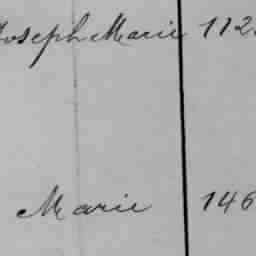 Joseph Marie 112
Marie 146